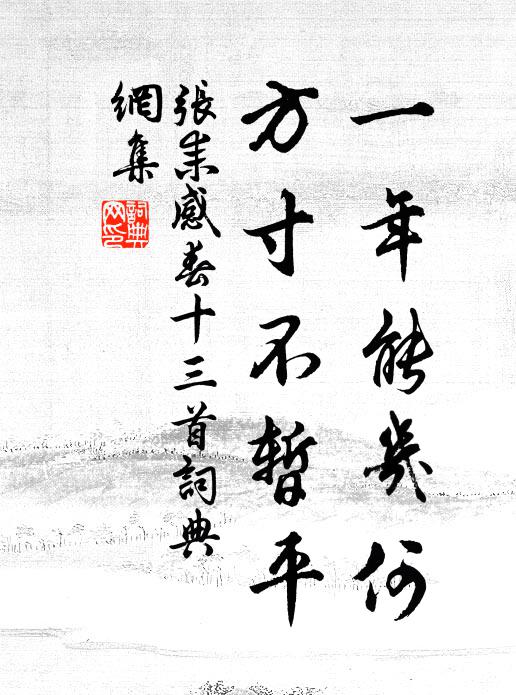 一年能幾何
方寸不暫平
張耒感春十三首詞典
網集
詞典
网印